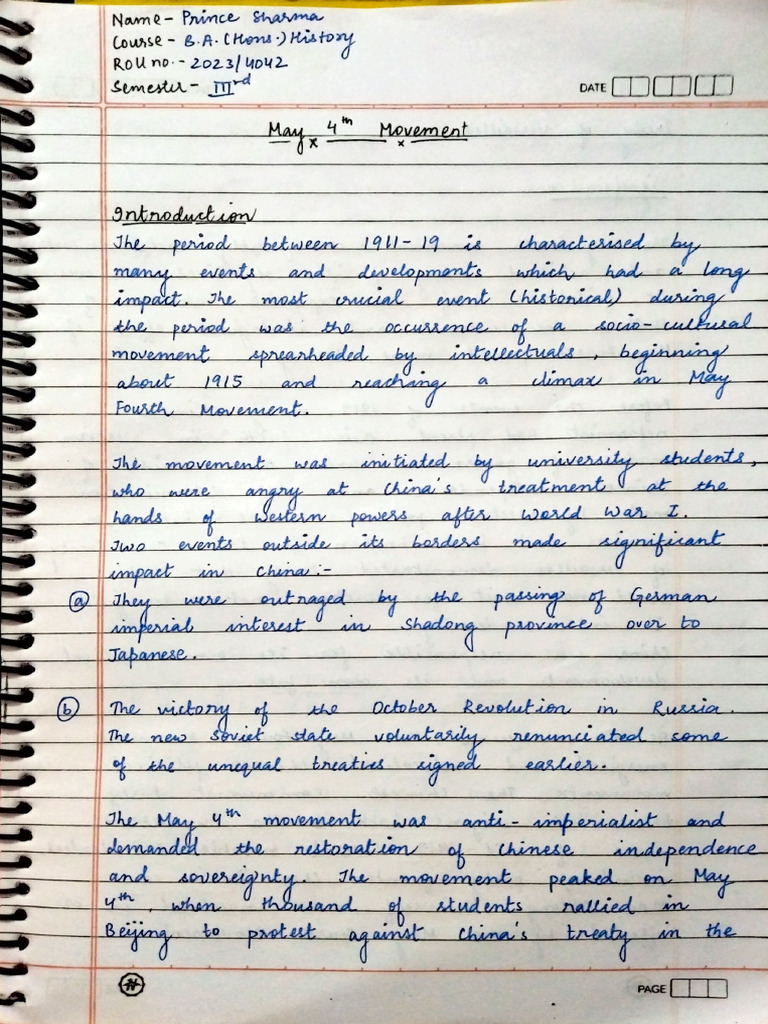 Name- Prince Sharma
Course- B.A. (Hons.) History
Roll no.- 2023/4042
Semester- IIIrd
DATE
May 4th Movement
Introduction
The period between 1911-19 is characterised by
many events and developments which had a long
impact. The most crucial event (historical) during
the period was the occurrence of a socio-cultural
movement sprearheaded by intellectuals, beginning
about 1915 and reaching a climax in May
Fourth Movement.
The movement was initiated by university students,
who were angry at China's treatment at the
hands of western powers after World War I.
Two events outside its borders made significant
impact in China:-
(a) They were outraged by the passing of German
imperial interest in Shadong province over to
Japanese.
(b) The victory of the October Revolution in Russia.
The new Soviet state voluntarily renunciated some
of the unequal treaties signed earlier.
The May 4th movement was anti-imperialist and
demanded the restoration of Chinese independence
and sovereignty. The movement peaked on May
4th, when thousand of students rallied in
Beijing to protest against China's treaty in the
PAGE